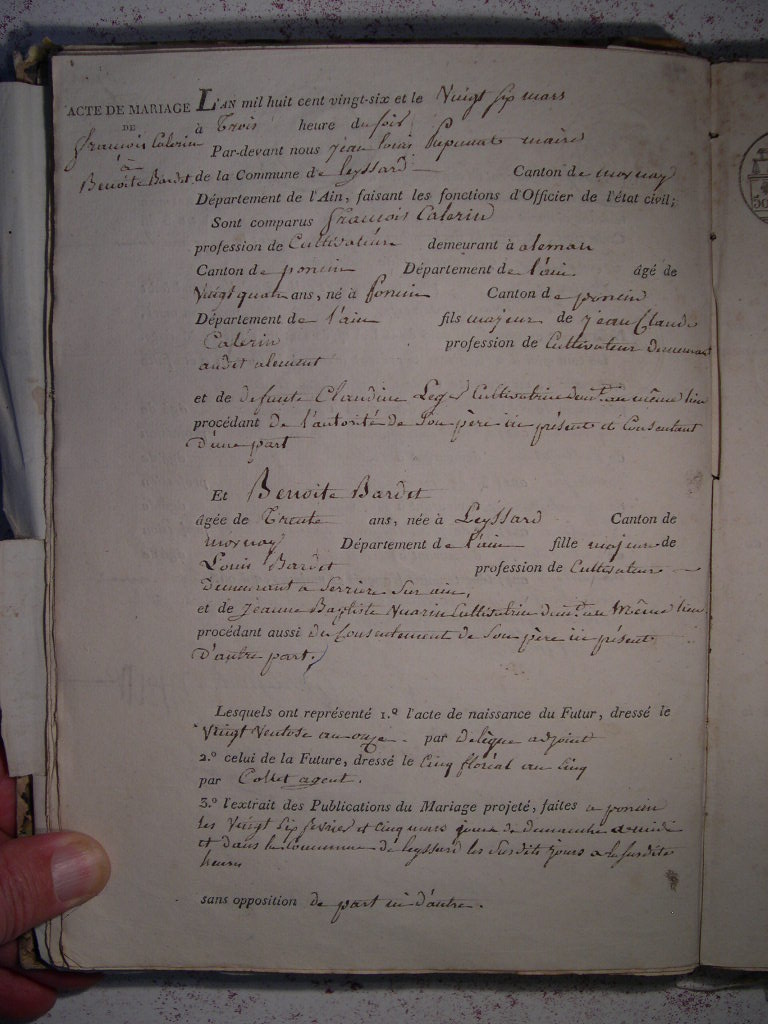 ACTE DE MARIAGE
DE
françois Calerin
à
Benoîte Bardet
L'AN mil huit cent vingt-six et le Vingt sep mars
à Trois heure du soir
Par-devant nous jean louis maire
de la Commune de leyssard Canton de mornay
Département de l'Ain, faisant les fonctions d'Officier de l'état civil;
Sont comparus françois Calerin
profession de Cultivateur demeurant à alement
Canton de poncin Département de l'ain âgé de
Vingt quatre ans, né à poncin Canton de poncin
Département de l'ain fils majeur de jean Claude
Calerin profession de Cultivateur demeurant
audit alement
et de defunte Claudine Cultivatrice demt. au même lieu
procédant de l'autorité de son père ici présent et Consentant
D'une part
Et Benoite Bardet
âgée de Trente ans, née à Leyssard Canton de
mornay Département de l'ain fille majeure de
Louis Bardet profession de Cultivateur
Demeurant a serriere sur ain,
et de jeanne Baptiste Cultivatrice demt. au même lieu
procédant aussi du Consentement de son père ici présent
D'autre part.
Lesquels ont représenté 1.º l'acte de naissance du Futur, dressé le
Vingt Ventose an onze par adjoint
2.º celui de la Future, dressé le Cinq floréal an Cinq
par Collet agent.
3.º l'extrait des Publications du Mariage projeté, faites a poncin
les Vingt six fevrier et Cinq mars jours de dimanche a midi
et dans la Commune de leyssard les susdits jours a la susdite
heure
sans opposition de part ni d'autre.
50